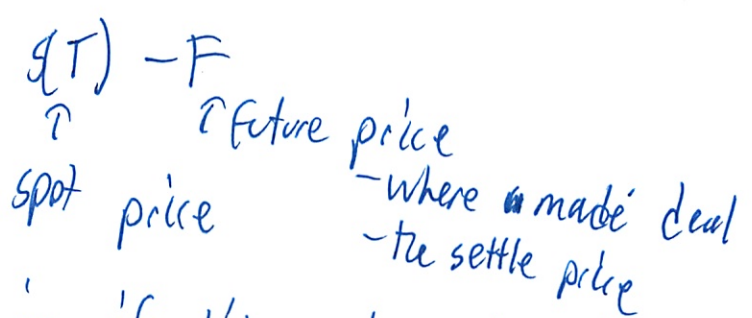 S(T) - F
↑ ↑ Future price
spot price
- where made deal
- the settle price